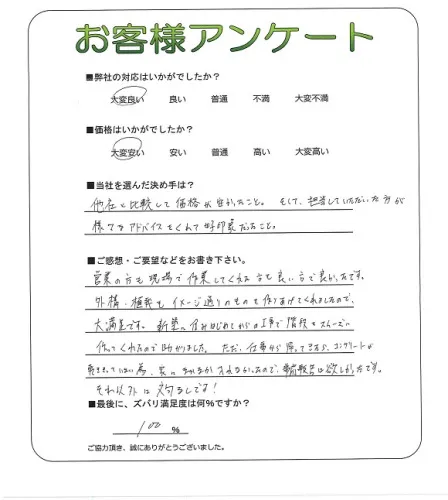 お客様アンケート
■弊社の対応はいかがでしたか？
大変良い 良い 普通 不満 大変不満
■価格はいかがでしたか？
大変安い 安い 普通 高い 大変高い
■当社を選んだ決め手は？
他社と比較して価格が安かったこと。そして、担当していただいた方が
様々なアドバイスをくれて好印象だったこと。
■ご感想・ご要望などをお書き下さい。
営業の方も現場で作業してくれる方も良い方で良かったです。
外構・植栽もイメージ通りのものを作りあげてくれましたので、
大満足です。新築に住みはじめてからの工事で階段をスムーズに
作ってくれたので助かりました。ただ、仕事から帰ってきたら、コンクリートが
為、家に 入れなかったので、事前報告は欲しかったです。
それ以外は文句なしです！
■最後に、ズバリ満足度は何%ですか？
100 %
ご協力頂き、誠にありがとうございました。